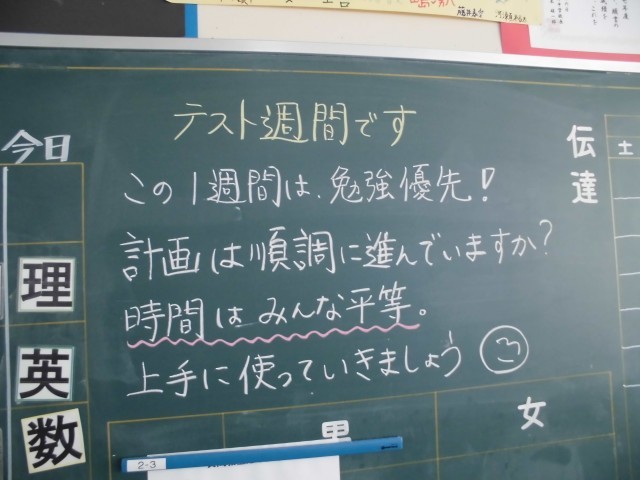 テスト週間です
この1週間は、勉強優先!
計画は順調に進んでいますか?
時間はみんな平等。
上手に使っていきましょう
今日
理
英
数
伝達
土
男
女
2-3